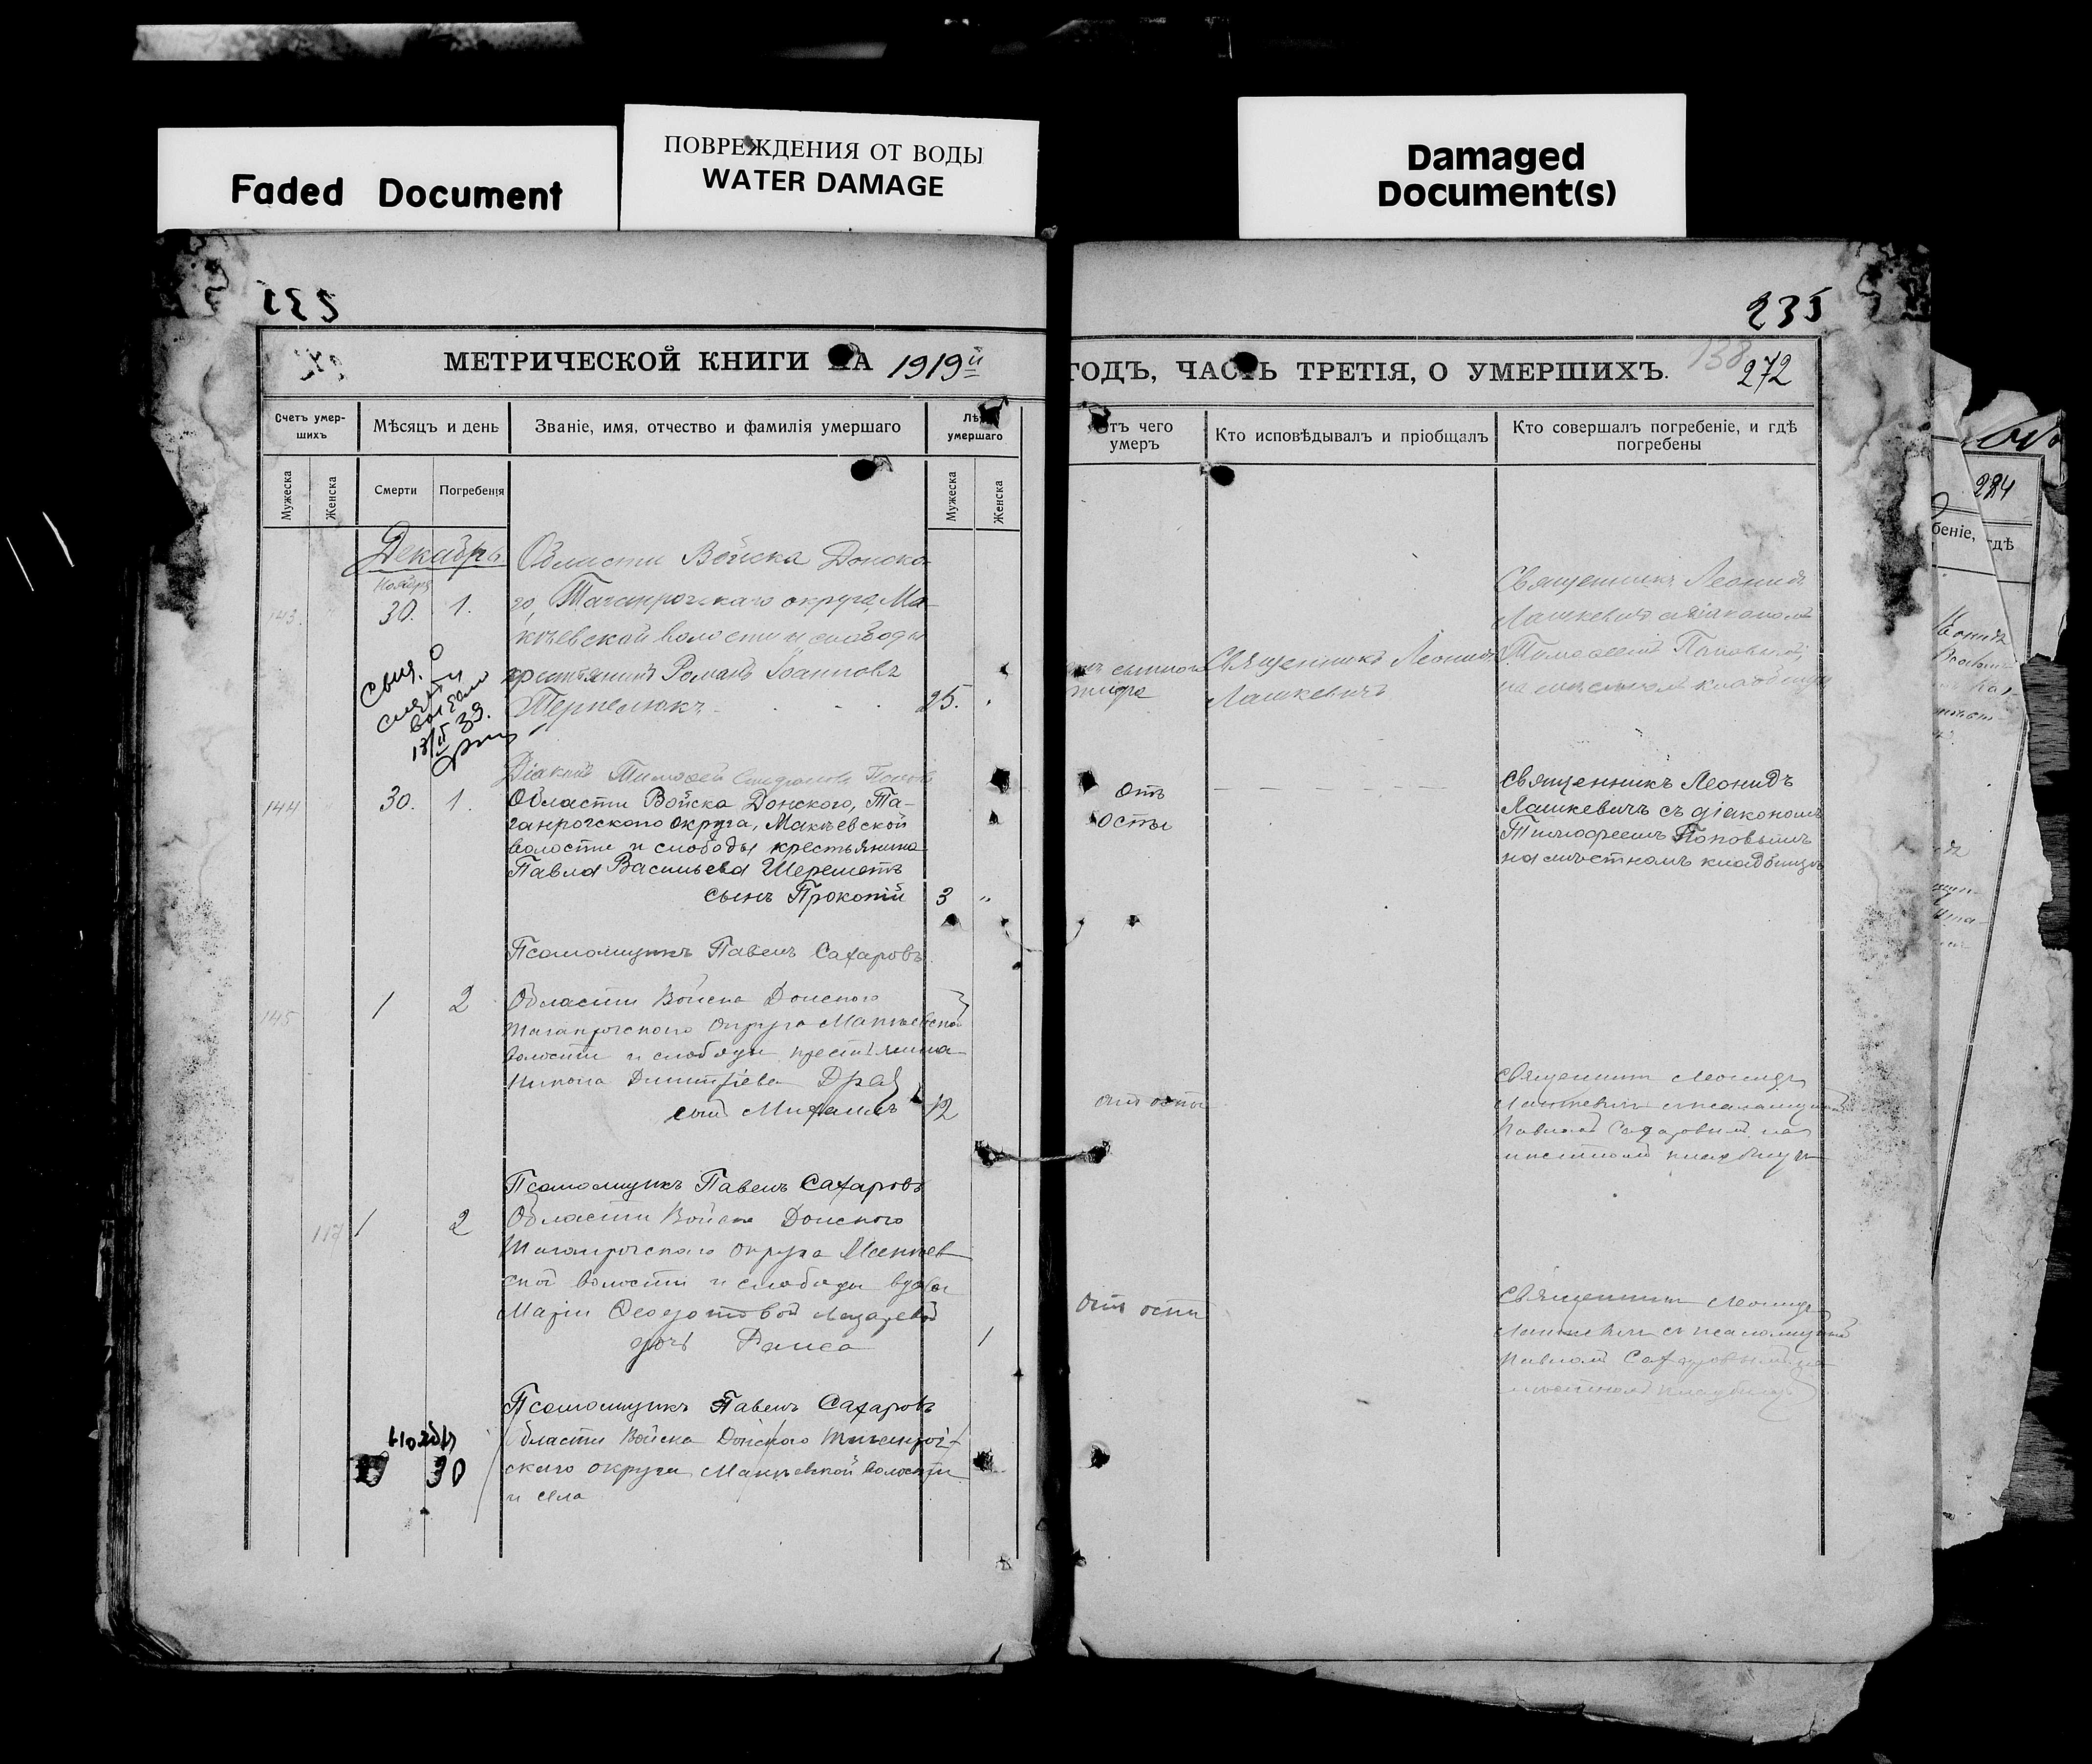 Faded Document
ПОВРЕЖДЕНИЯ ОТ ВОДЫ
WATER DAMAGE
Damaged
Document(s)
235
МЕТРИЧЕСКОЙ КНИГИ НА 1919й
Счетъ умер-
шихъ
Мѣсяцъ и день
Званіе, имя, отчество и фамилія умершаго
Лѣта
умершаго
Мужеска
Женска
Смерти
Погребенія
Мужеска
Женска
Декабрь
Ноября
143.
30.
1.
Области Войска Донско-
го, Таганрогскаго округа, Ма-
кѣевской волости и слободы
крестьянинъ Романъ Іоанновъ
25.
смерти
13/II 39.
Діаконъ Тимофей Поповъ
144
30.
1.
Области Войска Донского, Та-
ганрогскаго округа, Макѣевской
волости и слободы крестьянина
Павла Васильева Шереметъ
сынъ Прокопій
3
"
Псаломщикъ Павелъ Сахаровъ
145
1
2
Области Войска Донского
Таганрогского округа Макѣевской
волости и слободы крестьянина
Никона Димитріева
сынъ Михаилъ
12
Псаломщикъ Павелъ Сахаровъ
117
1
2
Области Войска Донского
Таганрогского округа Макѣев
ской волости и слободы вдовы
Маріи Ѳеодотовой Лазаревой
дочь Раиса
1
Псаломщикъ Павелъ Сахаровъ
Ноября
30
Области Войска Донского Таганрог-
скаго округа Макѣевской волости
и села
235
ГОДЪ, ЧАСТЬ ТРЕТІЯ, О УМЕРШИХЪ.
138
272
Отъ чего
умеръ
Кто исповѣдывалъ и пріобщалъ
Кто совершалъ погребеніе, и гдѣ
погребены
сыпного
тифа
Священникъ Леонидъ
Лашкевичъ
Священникъ Леонидъ
Лашкевичъ съ діакономъ
Тимофеемъ Поповымъ,
на мѣстномъ кладбищѣ
Отъ
Оспы
Священникъ Леонидъ
Лашкевичъ съ діакономъ
Тимофеемъ Поповымъ
на мѣстномъ кладбищѣ
отъ оспы
Священникъ Леонидъ
Лашкевичъ съ псаломщикомъ
Павломъ Сахаровымъ на
мѣстномъ кладбищѣ
Отъ оспы
Священникъ Леонидъ
Лашкевичъ съ псаломщикомъ
Павломъ Сахаровымъ на
мѣстномъ кладбищѣ
284
беніе,
гдѣ